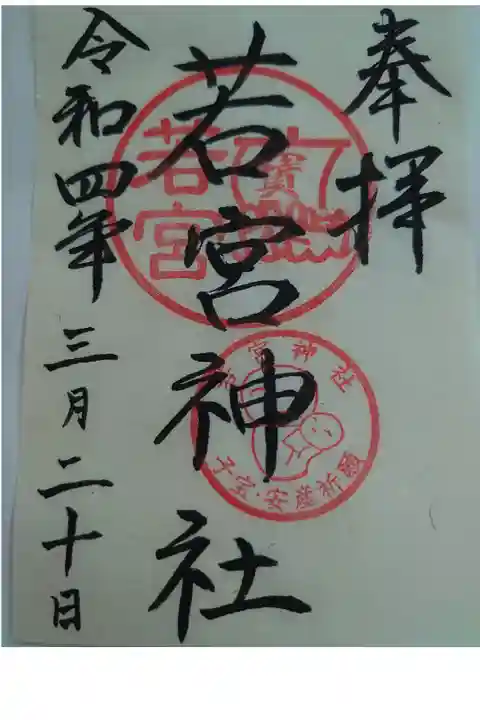 奉拝
若宮神社
令和四年三月二十日
若宮
宮神社
子宝・安産祈願